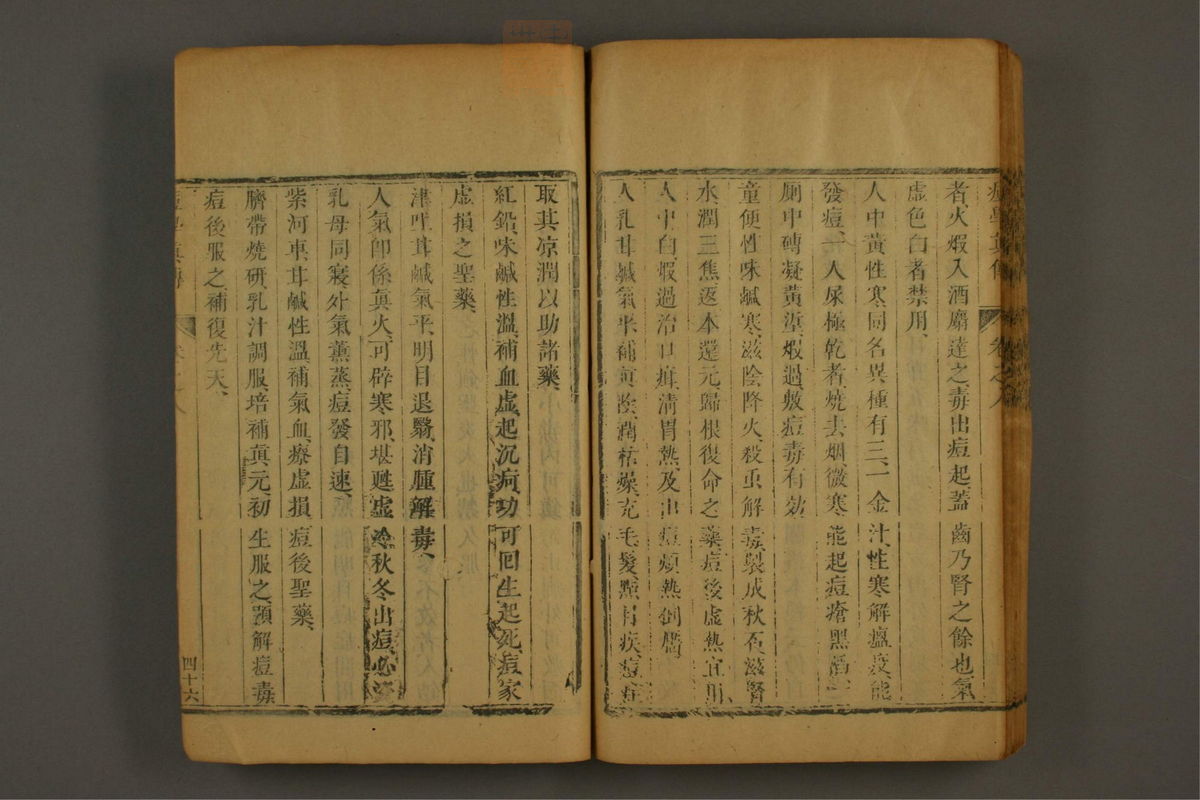 痘學真傳 卷之八
者火煅入酒麝達之毒出痘起蓋齒乃腎之餘也氣
虛色白者禁用
人中黃性寒同名異種有三一金汁性寒解瘟疫能
發痘一人尿極乾者燒去烟微寒能起痘瘡黑
厠中磚凝黃煅過敷痘毒有効
童便性味鹹寒滋陰降火殺虫解毒製成秋石滋腎
水潤三焦返本還元歸根復命之藥痘後虛熱宜用
人中白煅過治口疳清胃熱及出痘煩熱
人乳甘鹹氣平補真陰潤枯燥充毛髮點目疾痘症
取其凉潤以助諸藥
紅鉛味鹹性溫補血虛起沉疴功可回生起死痘家
虛損之聖藥
津唾甘鹹氣平明目退翳消腫解毒
人氣卽係真火可辟寒邪堪甦虛冷秋冬出痘必
乳母同寢外氣薰蒸痘發自速
紫河車甘鹹性溫補氣血療虛損痘後聖藥
臍帶燒研乳汁調服培補真元初生服之預解痘毒
痘後服之補復先天
痘學真傳
四十六